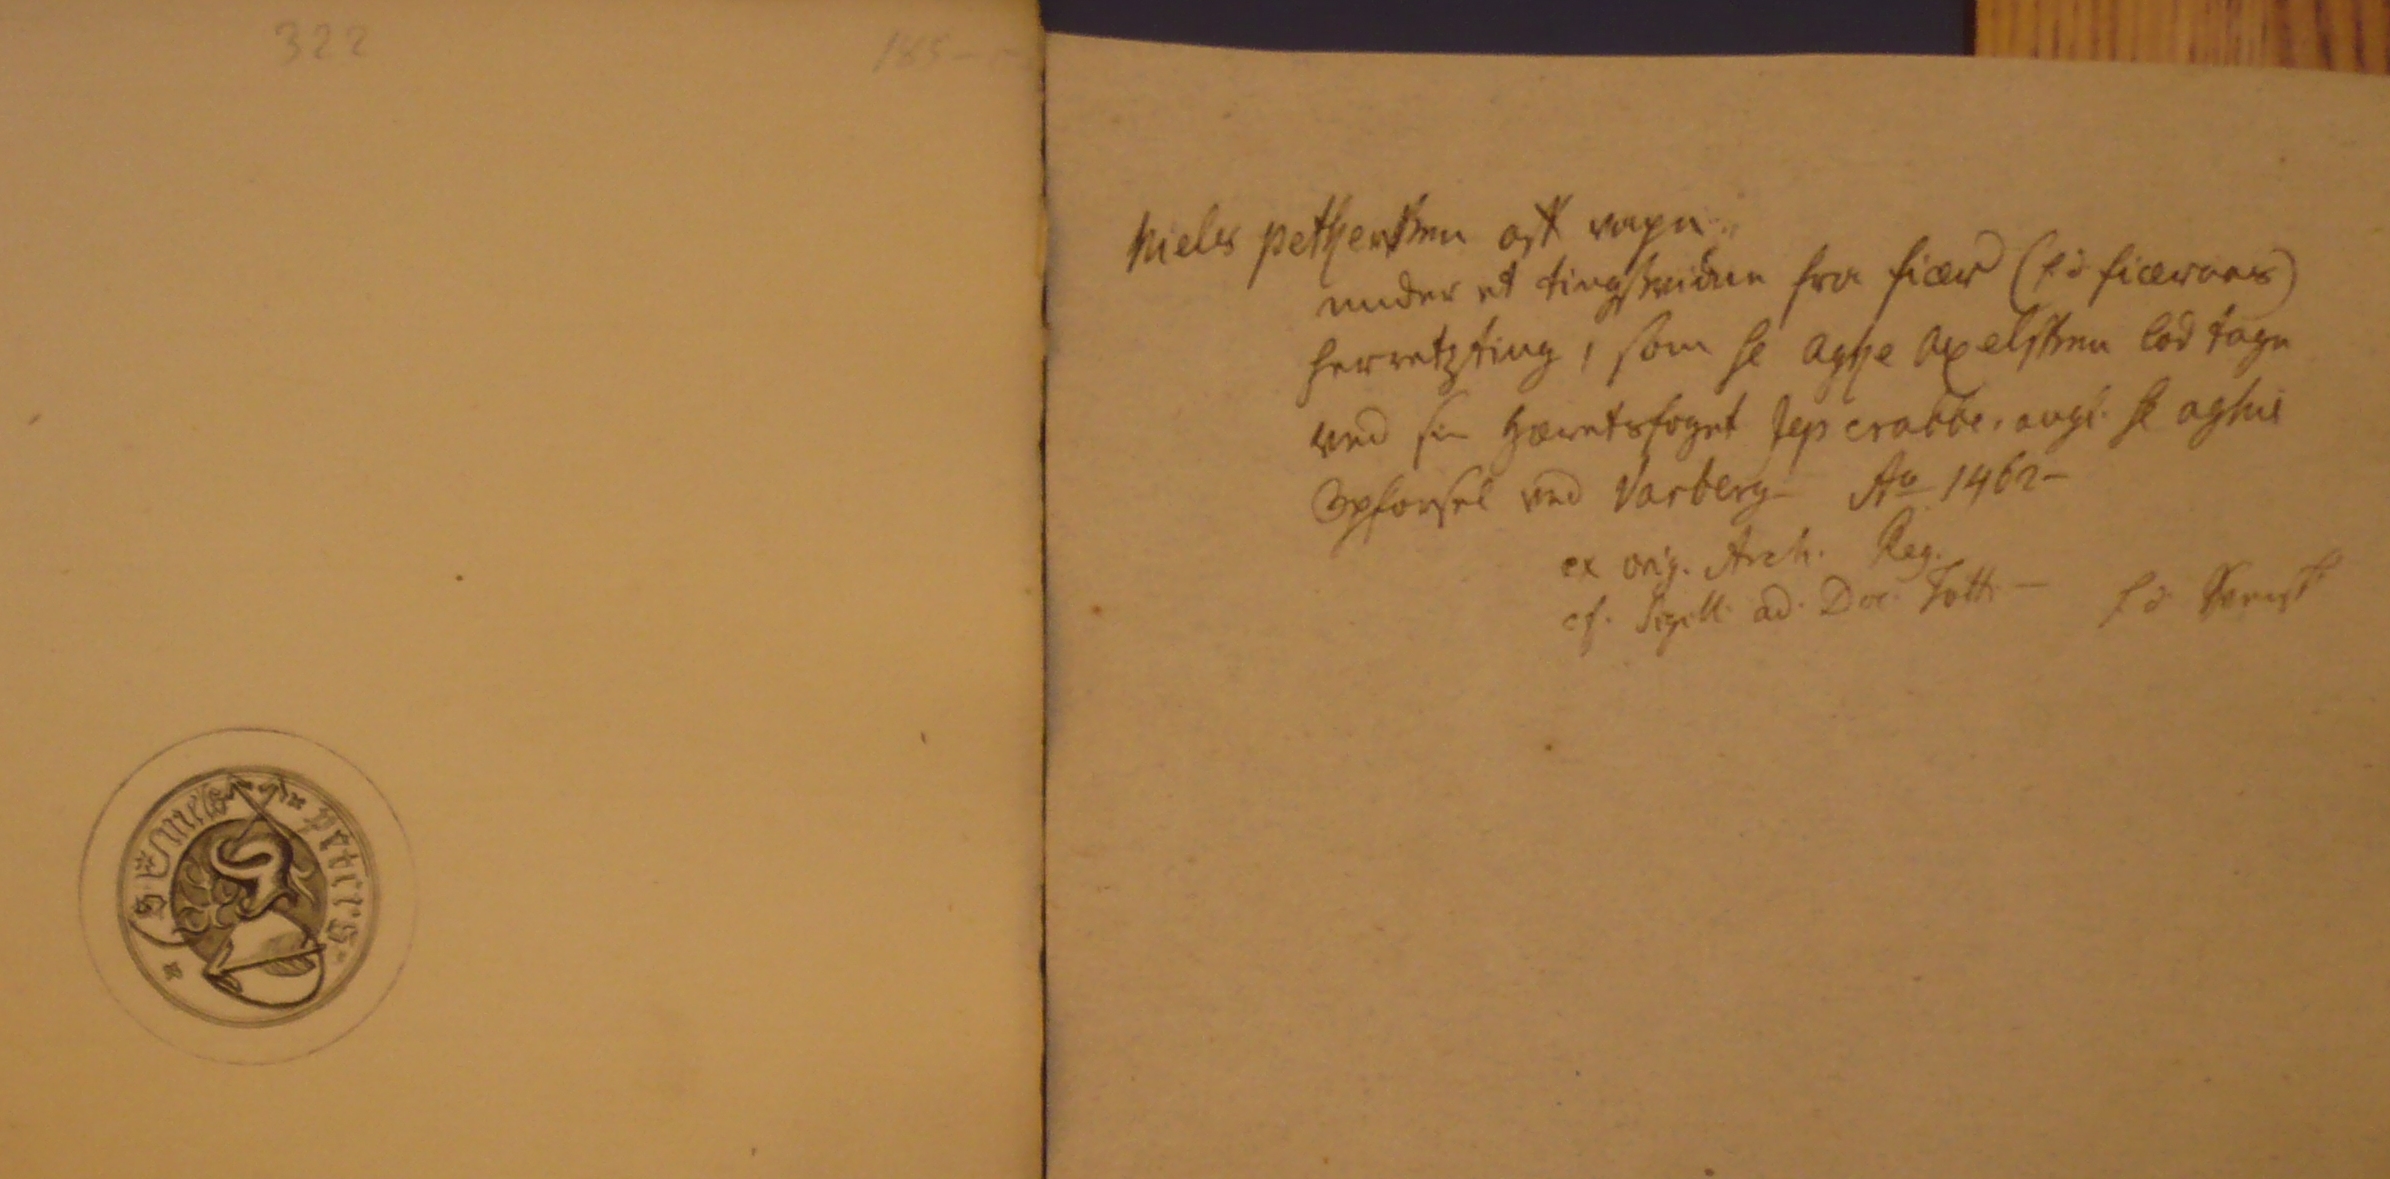 322
S niels peters
Niels pethersen aff vapn
under et tingsvidne fra fiær (ɔ: fiæraas)
herretzting, som he Aghe Axelssen lod tage
ved sin Herretsfoget Jep crabbe, ang. he aghes
Opførsel ved Varberg Aº 1462
ex orig. Arch. Reg.
cf. Sigill. ad. Doc. Tott.